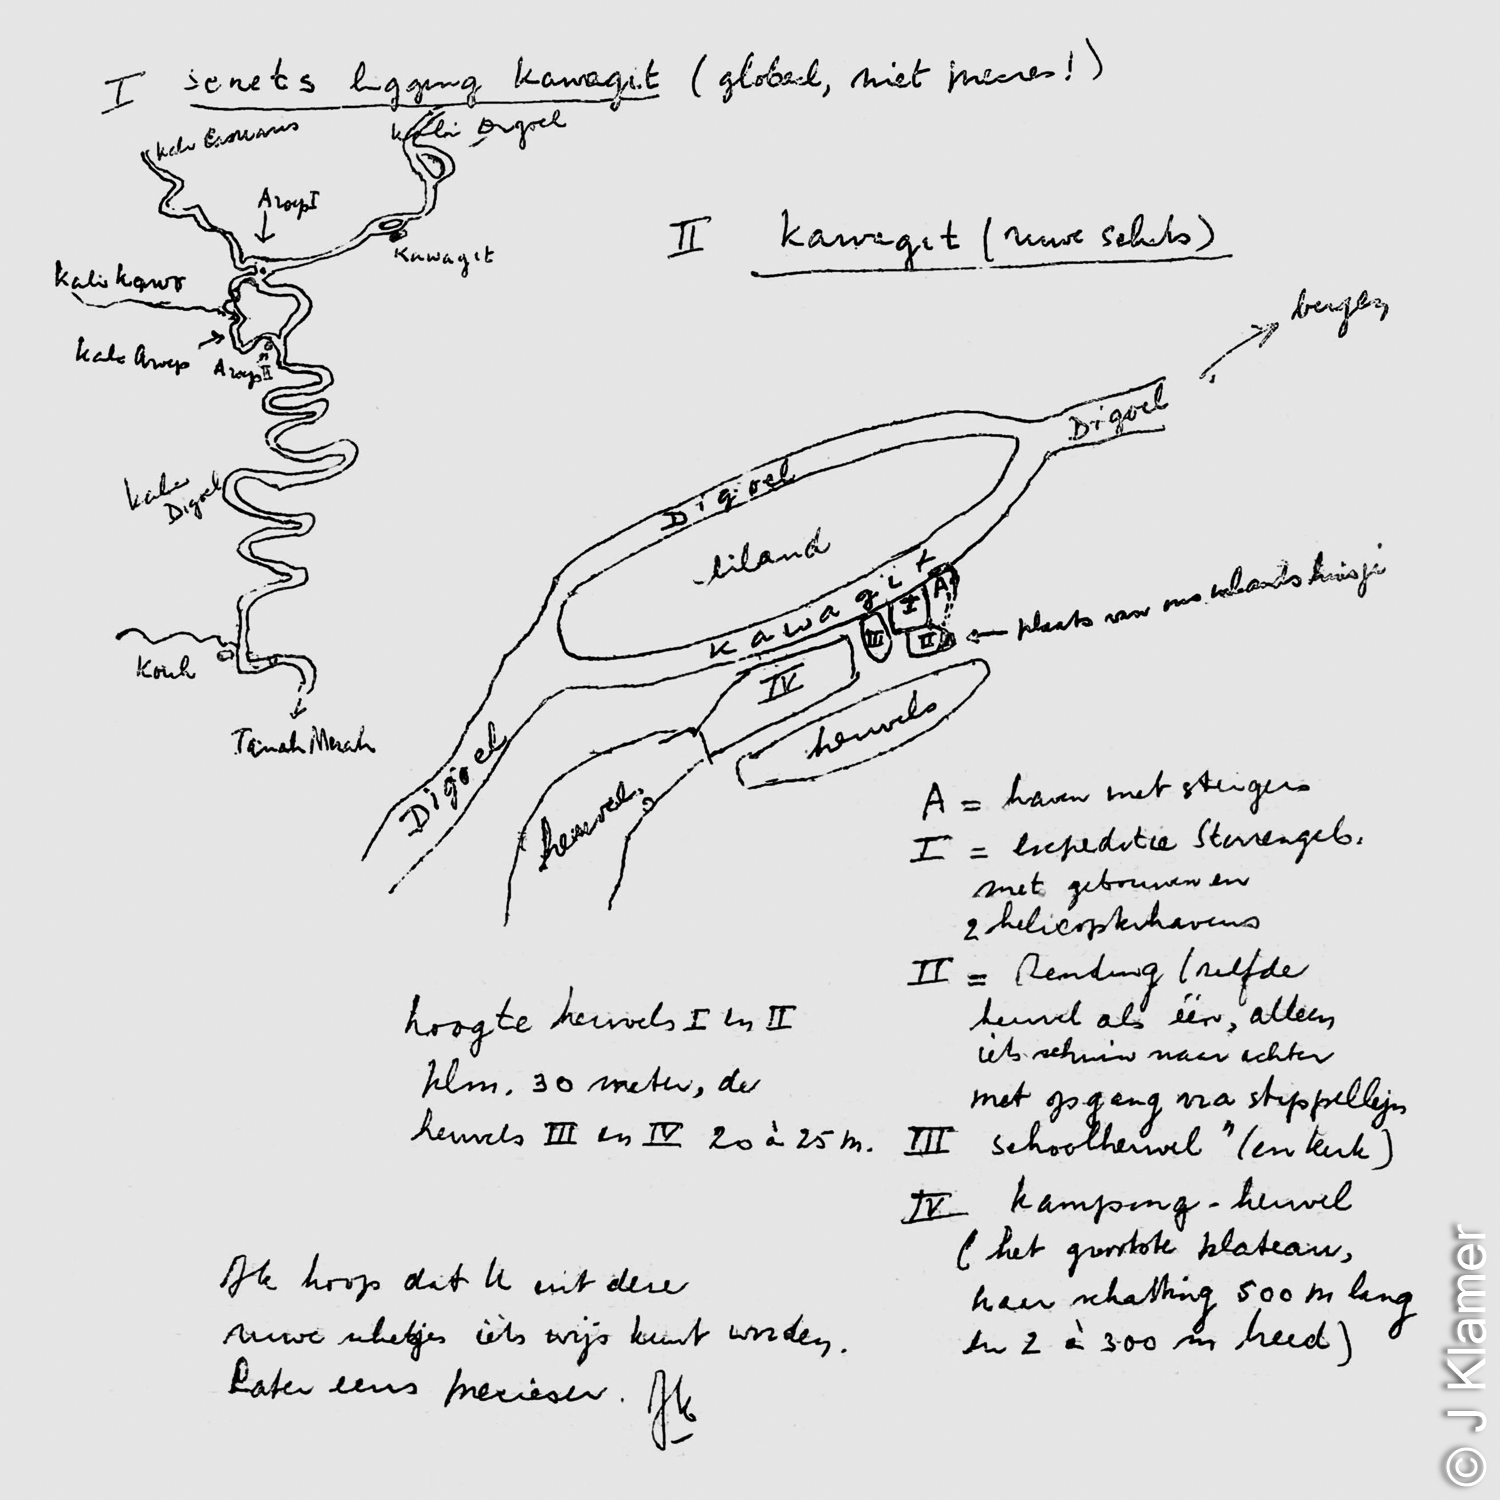 I scnets ligging Kawagit (globaal, niet precies!)
Kali Casuaris
Kali Digoel
Aroep I
Kawagit
Kali Kawo
Kali Aroep
Aroep II
Kali
Digoel
Kouh
Tanah Merah
II Kawagit (ruwe schets)
bergen
Digoel
Digoel
eiland
Kawagit
A
I
II
III
plaats van ons inlands huisje
IV
heuvels
Digoel
heuvel
A = haven met steigers
I = expeditie Sterrengeb.
met gebouwen en
2 helicopterhavens
II = Zending (zelfde
heuvel als één, alleen
iets schuin naar achter
met opgang via stippellijn
III schoolheuvel" (en kerk)
IV Kampong-heuvel
(het grootste plateau,
naar schatting 500 m lang
en 2 à 300 m breed)
hoogte heuvels I en II
plm. 30 meter, de
heuvels III en IV 20 à 25 m.
Ik hoop dat U uit deze
ruwe schetsjes iets wijs kunt worden.
Later eens preciezer. Jk
© J Klamer